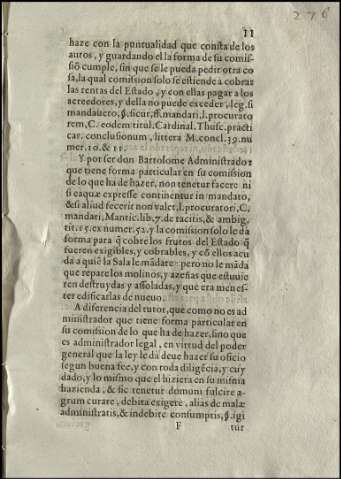 276
11
haze con la puntualidad que consta de los
autos, y guardando ella forma de su comis-
siõ cumple, sin que se le pueda pedir otra co
sa, la qual comission solo se estiende a cobrar
las rentas del Estado, y con ellas pagar a los
acreedores, y della no puede exceder, leg. si
mandauero, §. sicut, ff. mandari, l. procurato
rem, C. eodem titul. Cardinal. Thusc. practi
car. conclusionum, littera M. concl. 39. nu
mer. 10. & 11.
Y por ser don Bartolome Administrador
que tiene forma particular en su comission
de lo que ha de hazer, non tenetur facere ni
si ea quæ expresse continentur in mandato,
& si aliud fecerit non valet, l. procuratori, C.
mandati, Mantic. lib. 7. de tacitis, & ambig.
tit. 15. ex numer. 52. y la comission solo le da
forma para q̃ cobre los frutos del Estado q̃
fueren exigibles, y cobrables, y cõ ellos acu
da a quiẽ la Sala le mãdare: pero no le mãda
que repare los molinos, y azeñas que estuuie
ren destruydas y assoladas, y que era menes-
ter edificarlas de nueuo.
A diferencia del tutor, que como no es ad
ministrador que tiene forma particular en
su comission de lo que ha de hazer, sino que
es administrador legal, en virtud del poder
general que la ley le da deue hazer su oficio
segun buena fee, y con toda diligẽcia, y cuy
dado, y lo mismo que el hiziera en su misma
hazienda, & sic tenetur domum fulcire a-
grum curare, debita exigere, alias de male
administratis, & indebite consumptis, §. igi
F
tur